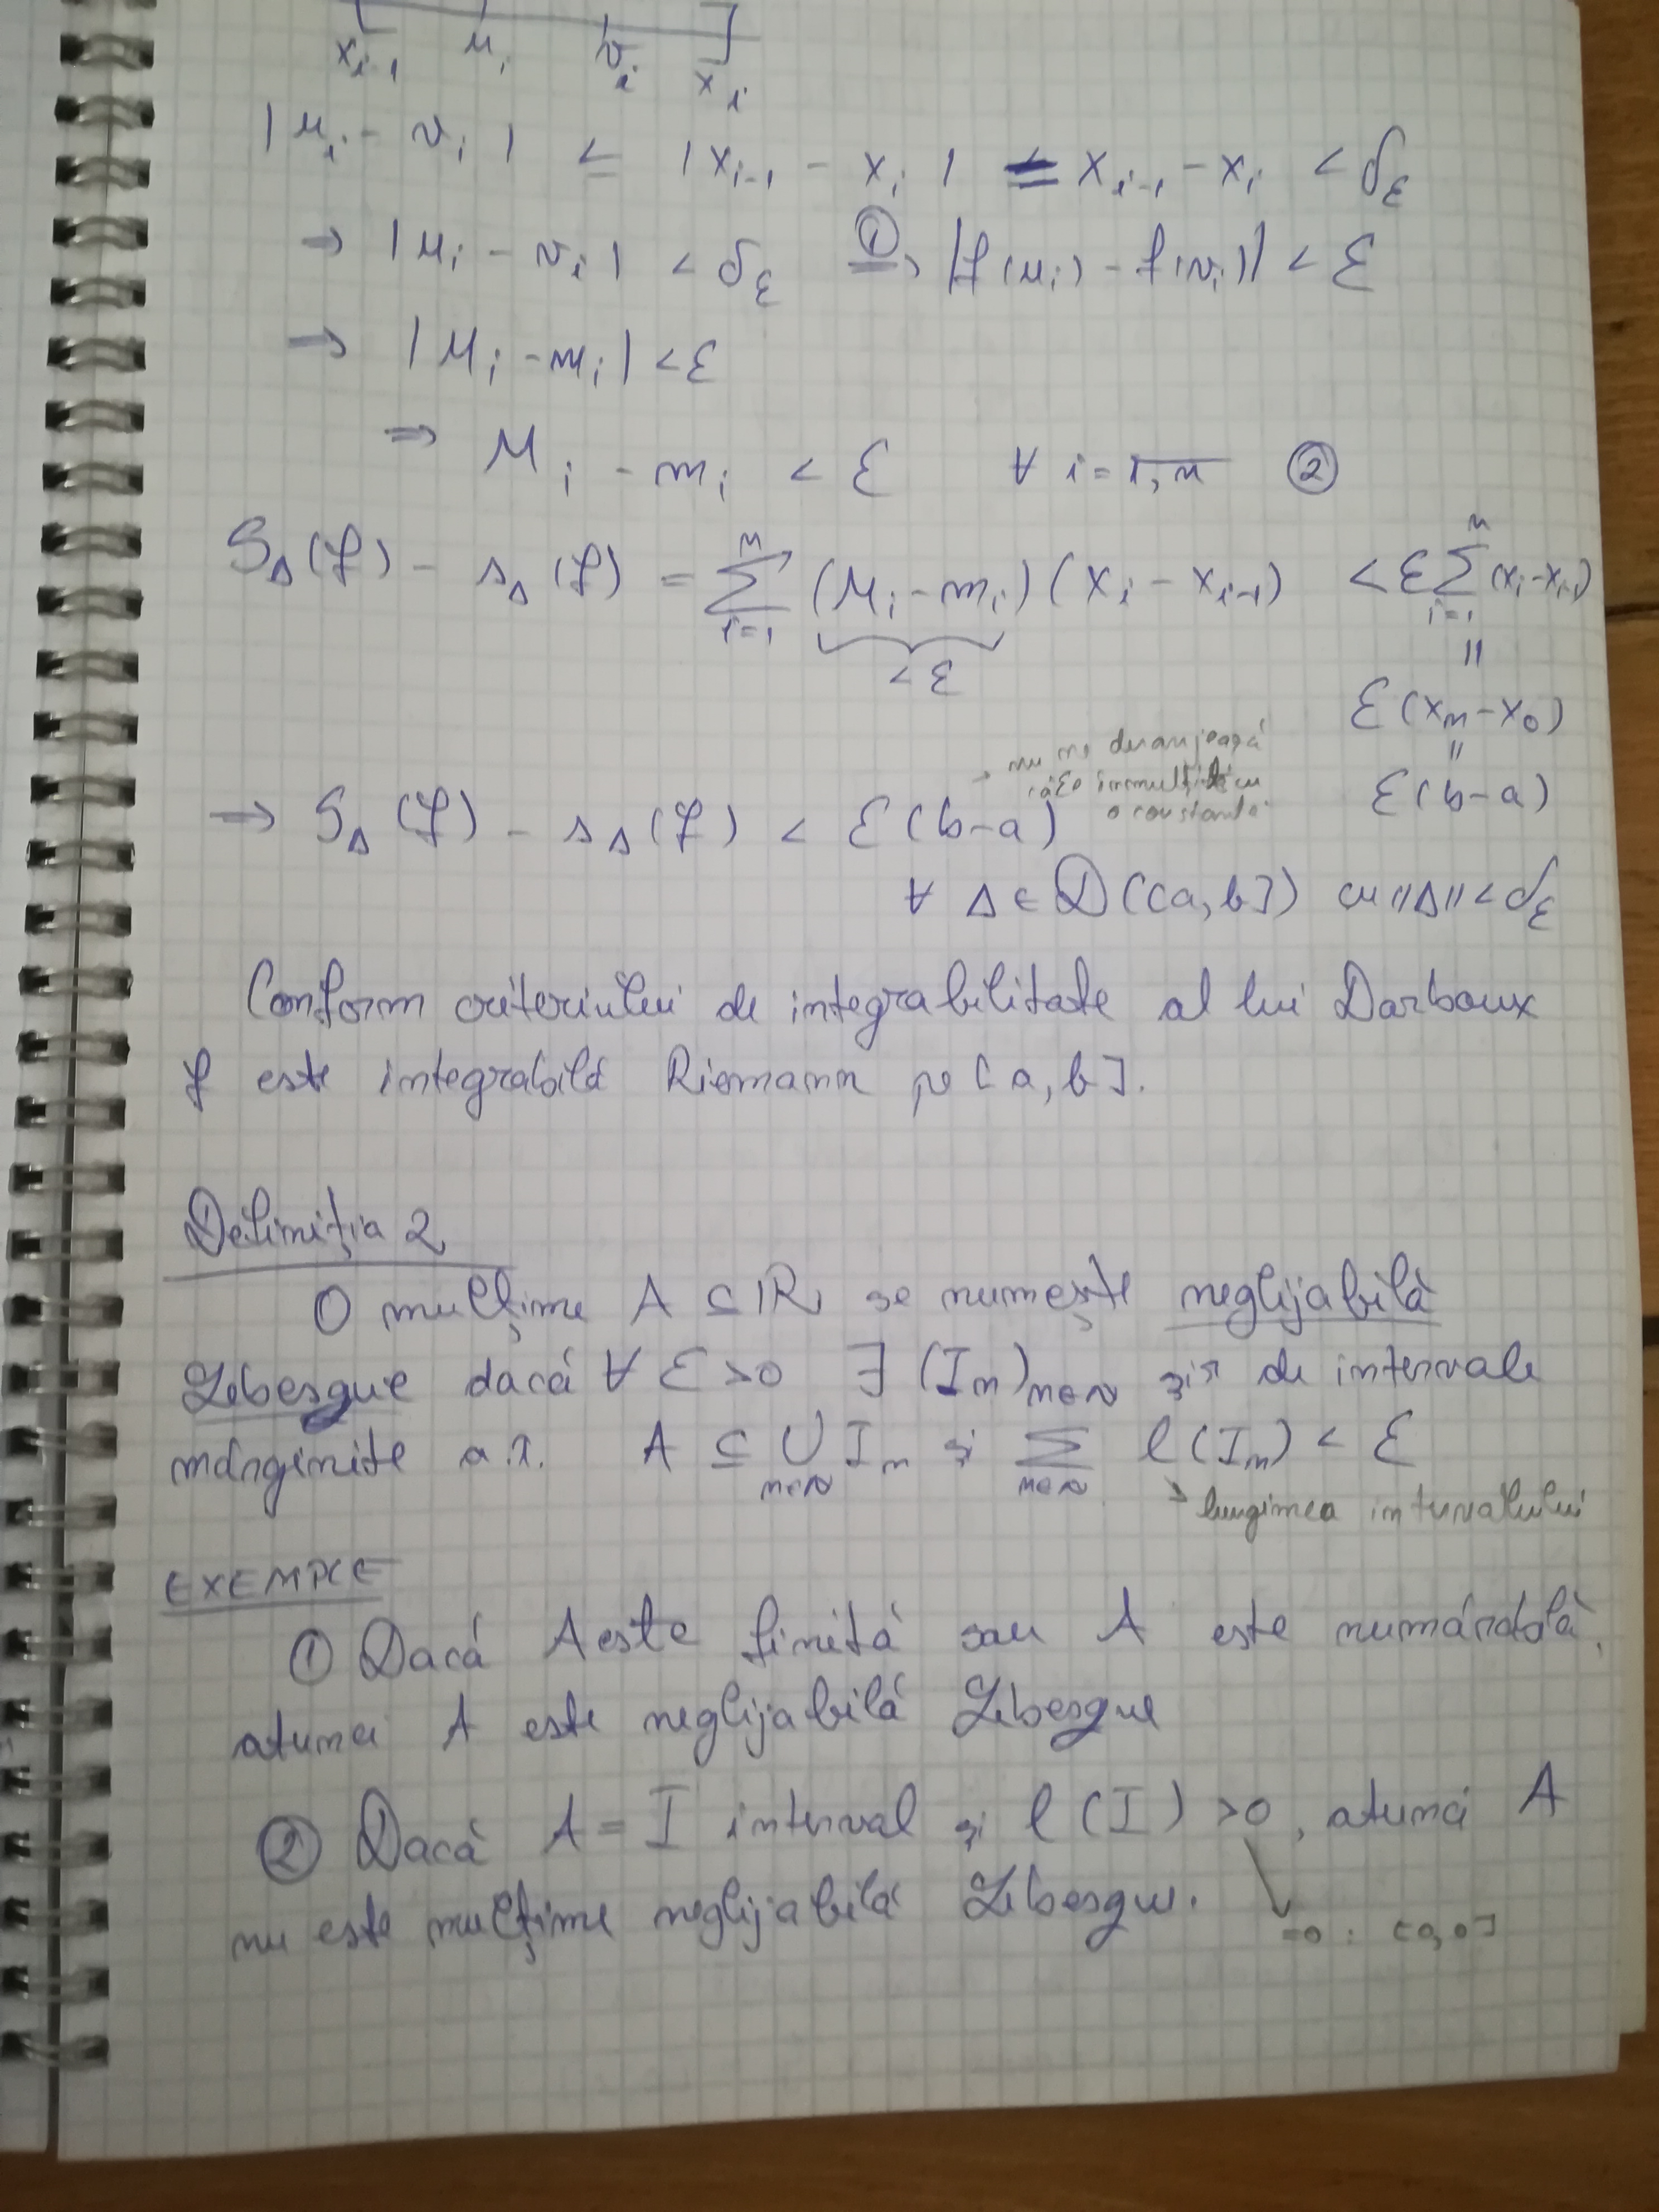 x_{i-1} u_i v_i x_i
|u_i - v_i| ≤ |x_{i-1} - x_i| = x_{i-1} - x_i < δ_ε
⇒ |u_i - v_i| < δ_ε ①⇒ |f(u_i) - f(v_i)| < ε
⇒ |M_i - m_i| < ε
⇒ M_i - m_i < ε ∀ i = 1,n ②
S_Δ(f) - s_Δ(f) = Σ_{i=1}^{n} (M_i - m_i)(x_i - x_{i-1}) < ε Σ_{i=1}^{n} (x_i - x_{i-1})
< ε
=
ε(x_n - x_0)
=
→ nu ne deranjează
că E înmulțit cu
o constantă
ε(b-a)
⇒ S_Δ(f) - s_Δ(f) < ε(b-a)
∀ Δ ∈ D([a,b]) cu ||Δ|| < δ_ε
Conform criteriului de integrabilitate al lui Darboux
f este integrabilă Riemann pe [a,b].
Definiția 2
O mulțime A ⊆ ℝ se numește neglijabilă
Lebesgue dacă ∀ ε > 0 ∃ (I_n)_{n∈ℕ} șir de intervale
mărginite a.î. A ⊆ ∪_{n∈ℕ} I_n și Σ_{n∈ℕ} l(I_n) < ε
→ lungimea intervalului
EXEMPLE
① Dacă A este finită sau A este numărabilă,
atunci A este neglijabilă Lebesgue
② Dacă A = I interval și l(I) > 0, atunci A
nu este mulțime neglijabilă Lebesgue.
=0 : [0,0]